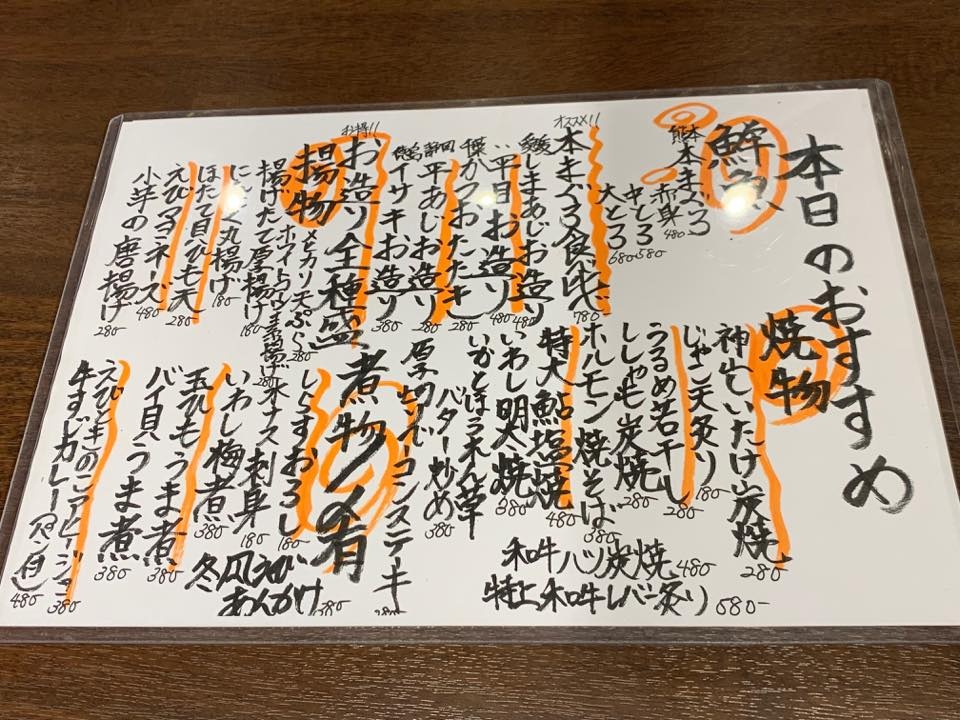 本日のおすすめ
鮮魚
熊本 本まぐろ
赤身 480
中とろ 580
大とろ 680
オススメ!!
本まぐろ食べ比べ 780
愛媛 しまあじお造り 480
平目お造り 480
かつおたたき 280
静岡 平あじお造り 280
徳島 イサキお造り 380
お得!!
お造り全種盛
揚物
とうもろこし素揚げ 280
揚げたて厚揚げ 180
にんにく丸揚げ 180
ほたて貝ひも天 280
えびマヨネーズ 480
小芋の唐揚げ 280
焼物
神生しいたけ炭焼 280
じゃこ天炙り 180
うるめ若干し 280
ししゃも炭焼 280
ホルモン焼そば 380
特大鮎塩焼 480
いわし明太焼 380
いかとほうれん草
バター炒め 380
厚切ベーコンステーキ 280
和牛ハツ炭焼 480
特上和牛レバー炙り 580
煮物ノ肴
しらすおろし 180
水ナス刺身 180
いわし梅煮 380
玉ひもうま煮 380
バイ貝うま煮 380
えびときのこアヒージョ 380
牛すじカレー(パン付) 480
冬瓜えび
あんかけ 380